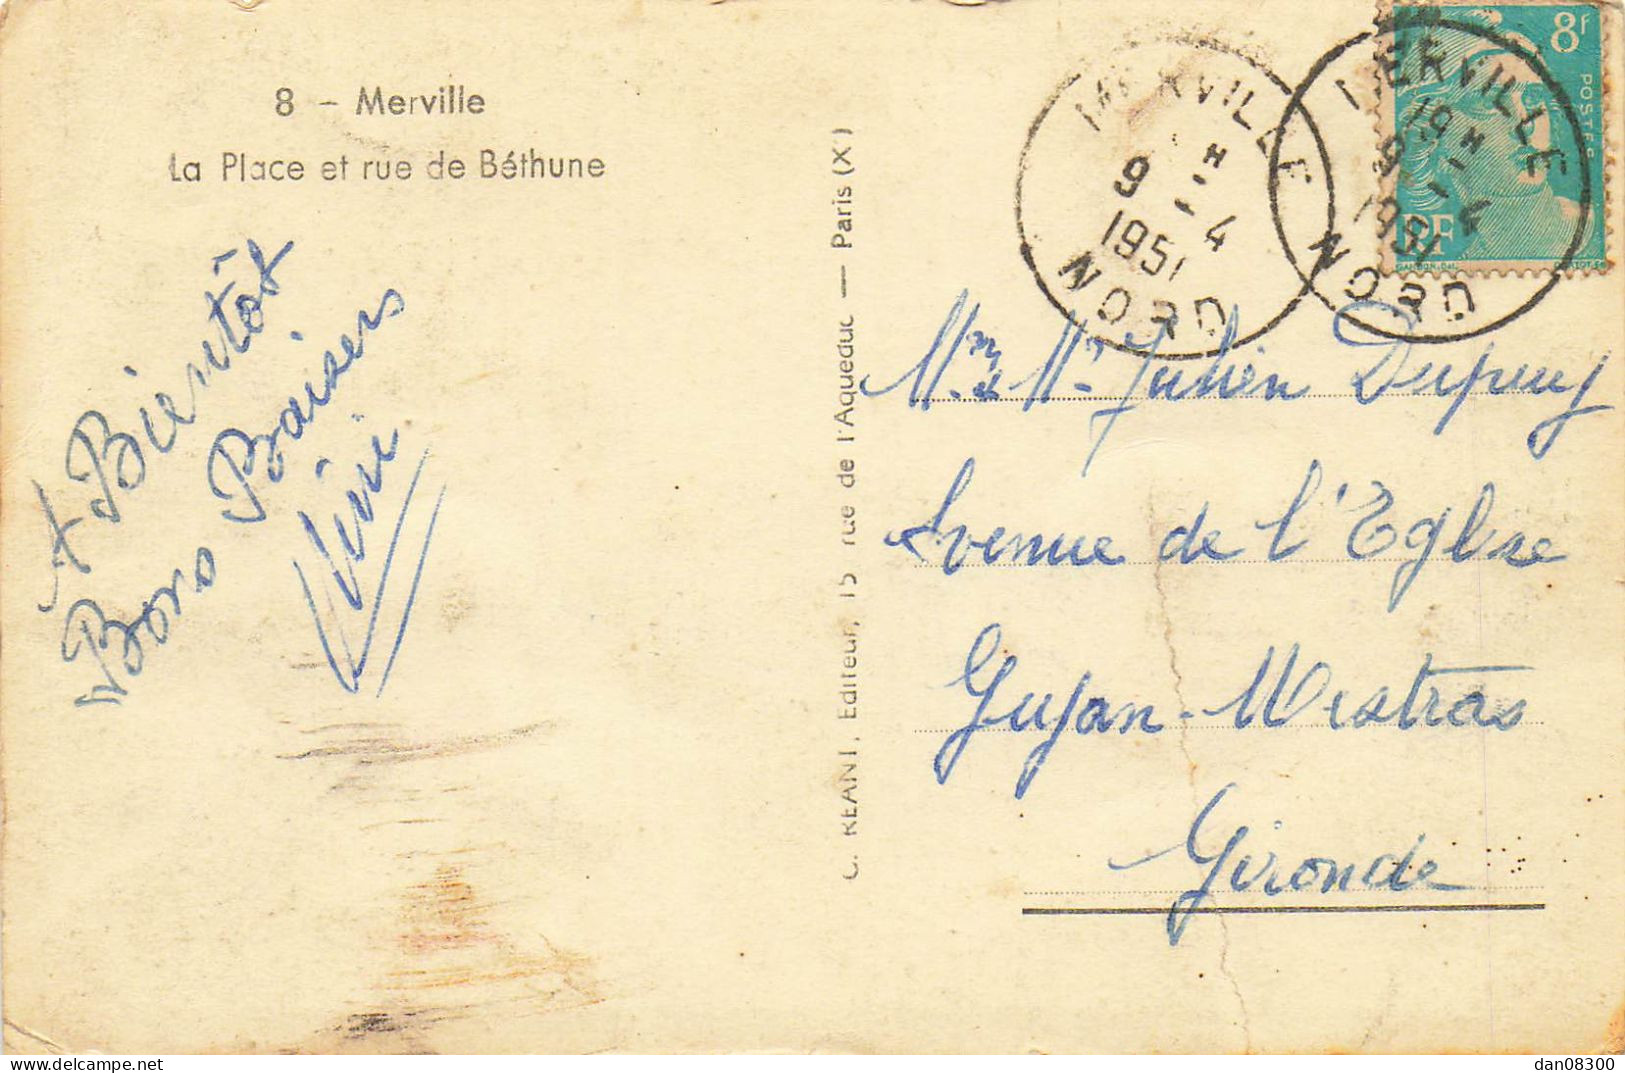 8 - Merville
La Place et rue de Béthune
A Bientôt
Bons Baisers
Nini
G. RÉANT, Editeur, 15 rue de l'Aqueduc — Paris (X)
MERVILLE
9 H
1951 4
NORD
MERVILLE
15 H
9 4
1951
NORD
8f
POSTES
RF
GANDON.Del
Mr & Mme Julien Dupuy
Avenue de l'Eglise
Gujan-Mestras
Gironde
www.delcampe.net
dan08300